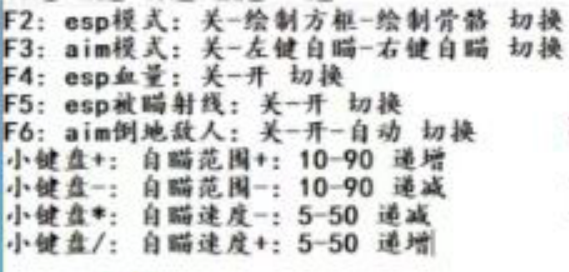 F2: esp模式: 关-绘制方框-绘制骨骼 切换
F3: aim模式: 关-左键自瞄-右键自瞄 切换
F4: esp血量: 关-开 切换
F5: esp被瞄射线: 关-开 切换
F6: aim倒地敌人: 关-开-自动 切换
小键盘+: 自瞄范围+: 10-90 递增
小键盘-: 自瞄范围-: 10-90 递减
小键盘*: 自瞄速度-: 5-50 递减
小键盘/: 自瞄速度+: 5-50 递增